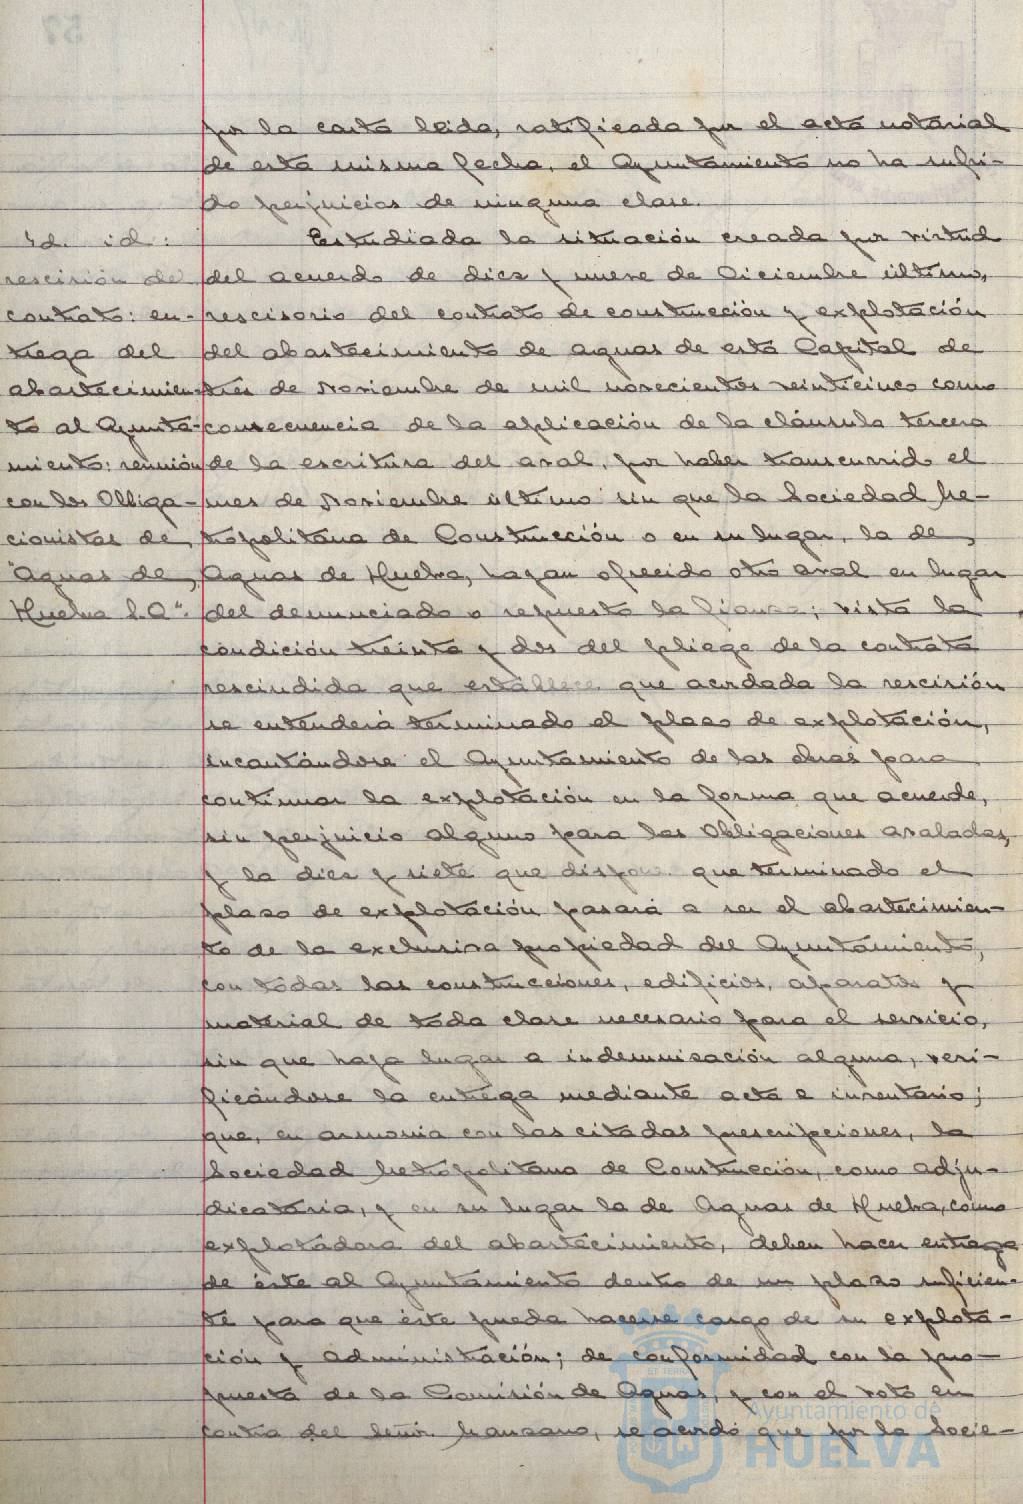 por la carta leida, ratificada por el acta notarial
de esta misma fecha, el Ayuntamiento no ha sufri-
do perjuicios de ninguna clase.
Id. id.:
rescisión de
contrato: en-
trega del
abastecimien-
to al Ayunta-
miento: reunión
con los Obliga-
cionistas de
"Aguas de
Huelva S.A".
Estudiada la situación creada por virtud
del acuerdo de diez y nueve de Diciembre último,
rescisorio del contrato de construcción y explotación
del abastecimiento de aguas de esta Capital de
tres de Noviembre de mil novecientos veinticinco como
consecuencia de la aplicación de la cláusula tercera
de la escritura del aval, por haber transcurrido el
mes de Noviembre último sin que la Sociedad Me-
tropolitana de Construcción o en su lugar, la de
Aguas de Huelva, hayan ofrecido otro aval en lugar
del denunciado o repuesto la fianza; vista la
condición treinta y dos del pliego de la contrata
rescindida que establece que acordada la rescisión
se entenderá terminado el plazo de explotación,
incautándose el Ayuntamiento de las obras para
continuar la explotación en la forma que acuerde,
sin perjuicio alguno para las Obligaciones avaladas,
y la diez y siete que dispone que terminado el
plazo de explotación pasará a ser el abastecimien-
to de la exclusiva propiedad del Ayuntamiento,
con todas las construcciones, edificios, aparatos y
material de toda clase necesario para el servicio,
sin que haya lugar a indemnización alguna, veri-
ficándose la entrega mediante acta e inventario;
que, en armonia con las citadas prescripciones, la
Sociedad Metropolitana de Construcción, como adju-
dicataria, y en su lugar la de Aguas de Huelva, como
explotadora del abastecimiento, deben hacer entrega
de éste al Ayuntamiento dentro de un plazo suficien-
te para que éste pueda hacerse cargo de su explota-
ción y administración; de conformidad con la pro-
puesta de la Comisión de Aguas, y con el voto en
contra del Señor Manzano, se acordó que por la Socie-
Ayuntamiento de
HUELVA